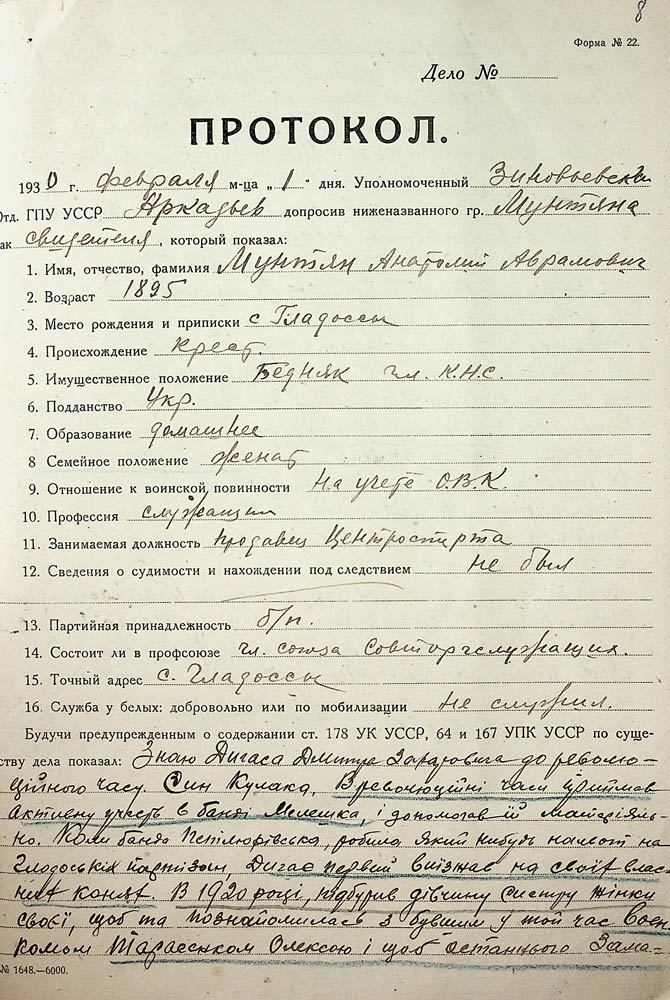 8
Форма № 22.
Дело №
ПРОТОКОЛ.
1930 г. февраля м-ца „1" дня. Уполномоченный Зиновьевск
Отд. ГПУ УССР Аркадьев допросив ниженазванного гр. Мунтяна
ак свидетеля, который показал:
1. Имя, отчество, фамилия Мунтян Анатолий Аврамович
2. Возраст 1895
3. Место рождения и приписки с Гладоссы
4. Происхождение крест.
5. Имущественное положение Бедняк чл. К.Н.С.
6. Подданство Укр.
7. Образование домашнее
8 Семейное положение женат
9. Отношение к воинской повинности На учете О.В.К.
10. Профессия служащий
11. Занимаемая должность продавец Центроспирта
12. Сведения о судимости и нахождении под следствием не был
13. Партийная принадлежность б/п.
14. Состоит ли в профсоюзе чл. союза Совторгслужащих.
15. Точный адрес с. Гладоссы
16. Служба у белых: добровольно или по мобилизации не служил.
Будучи предупрежденным о содержании ст. 178 УК УССР, 64 и 167 УПК УССР по суще-
ству дела показал: Знаю Дигаса Дмитра Захаровича до револю-
ційного часу. Син Кулака, В революційні часи приймав
активну участь в банді Мелешка, і допомогав їй матеріяль-
но. Коли банда Петлюрівська, робила який нибудь нальот на
Глодоських партізан, Дигас первий виїзжав на своїх влас-
них конях. В 1920 році, підбурив дівчину систру жінки
своєї, щоб та познайомилась з бувшим у той час Воєн-
комом Тарасенком Олексою і щоб останнього зама-
№ 1648.—6000.